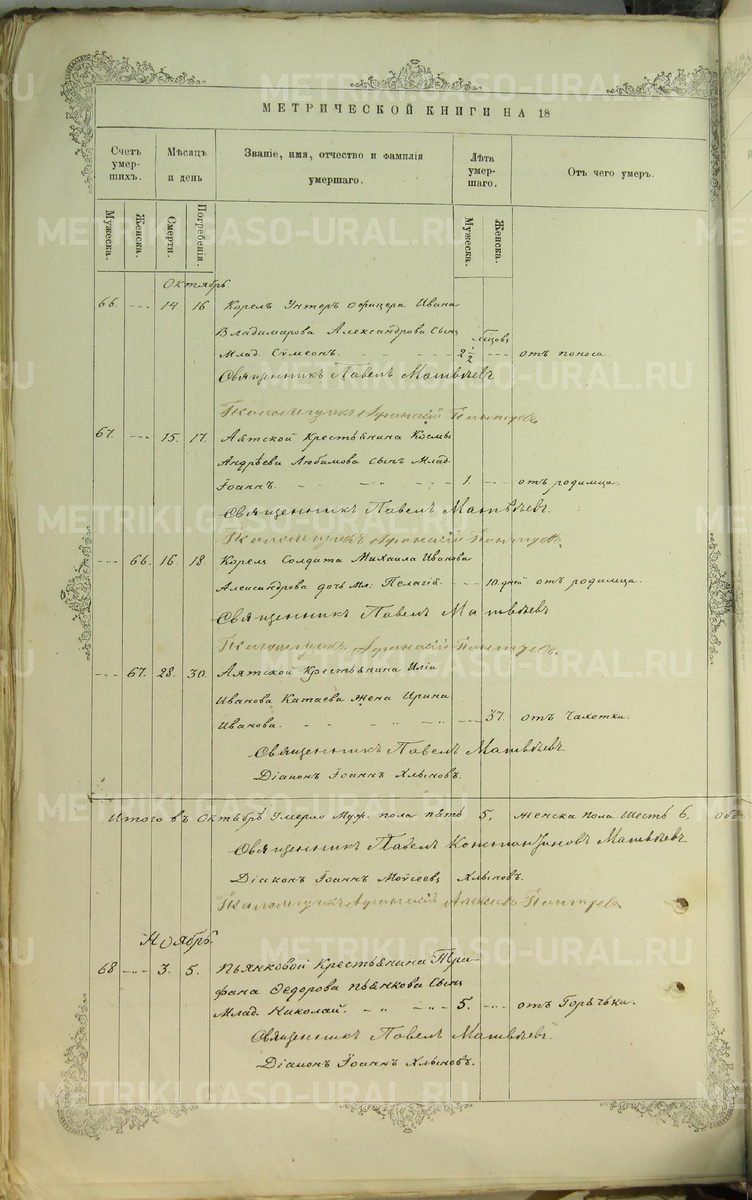 МЕТРИЧЕСКОЙ КНИГИ НА 18
Счетъ умер- шихъ.
Мѣсяцъ и день
Званіе, имя, отчество и фамилія умершаго.
Лѣта умер- шаго.
Отъ чего умеръ.
Мужеска.
Женска.
Смерти.
Погребенія.
Мужеска.
Женска.
Октябрь
66. 14 16 Корелъ Унтеръ офицера Ивана
Владимирова Александрова Сынъ
Млад. Сѵмеонъ. 2 1/2 отъ поноса.
Священникъ Павелъ Матвѣевъ
67. 15. 17. Аятской Крестьянина Козьмы
Андрѣева Любимова Сынъ Млад.
Іоаннъ. 1. отъ родимца.
Священникъ Павелъ Матвѣевъ.
66. 16 18. Корелъ Солдата Михаила Иванова
Александрова дочь Мл: Пелагія. 10. дней отъ родимца.
Священникъ Павелъ Матвѣевъ
67. 28. 30. Аятской Крестьянина Иліи
Иванова Катаева жена Ирина
Иванова. 37. отъ Чахотки.
Священникъ Павелъ Матвѣевъ.
Діаконъ Іоаннъ Хлыновъ.
Итого въ Октябрѣ Умерло Муж. пола пять 5, женска пола Шесть 6, обо
Священникъ Павелъ Константиновъ Матвѣевъ
Діаконъ Іоаннъ Моѵсеевъ Хлыновъ.
Ноябрь.
68 3. 5. Пьянковой Крестьянина Три-
фана Федорова Пьянкова Сынъ
Млад. Николай. 5. отъ Горячки.
Священникъ Павелъ Матвѣевъ.
Діаконъ Іоаннъ Хлыновъ.
METRIKI.GASO-URAL.RU